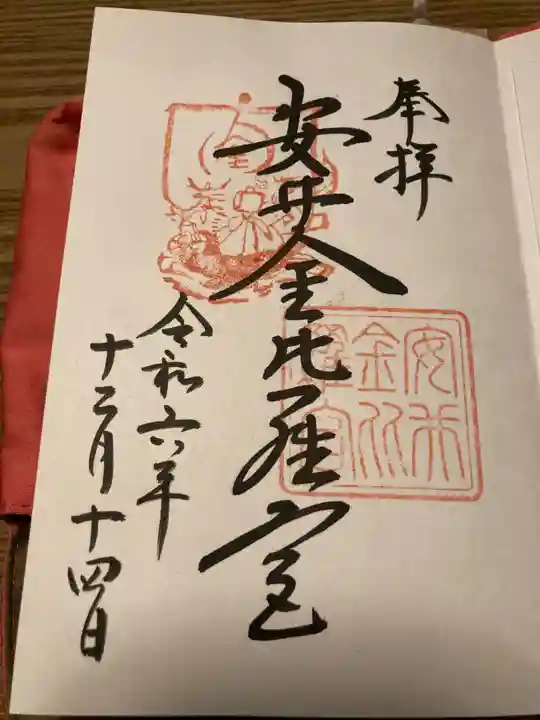 奉拝
安井金比羅宮
安井金比羅宮
令和六年
十二月十四日